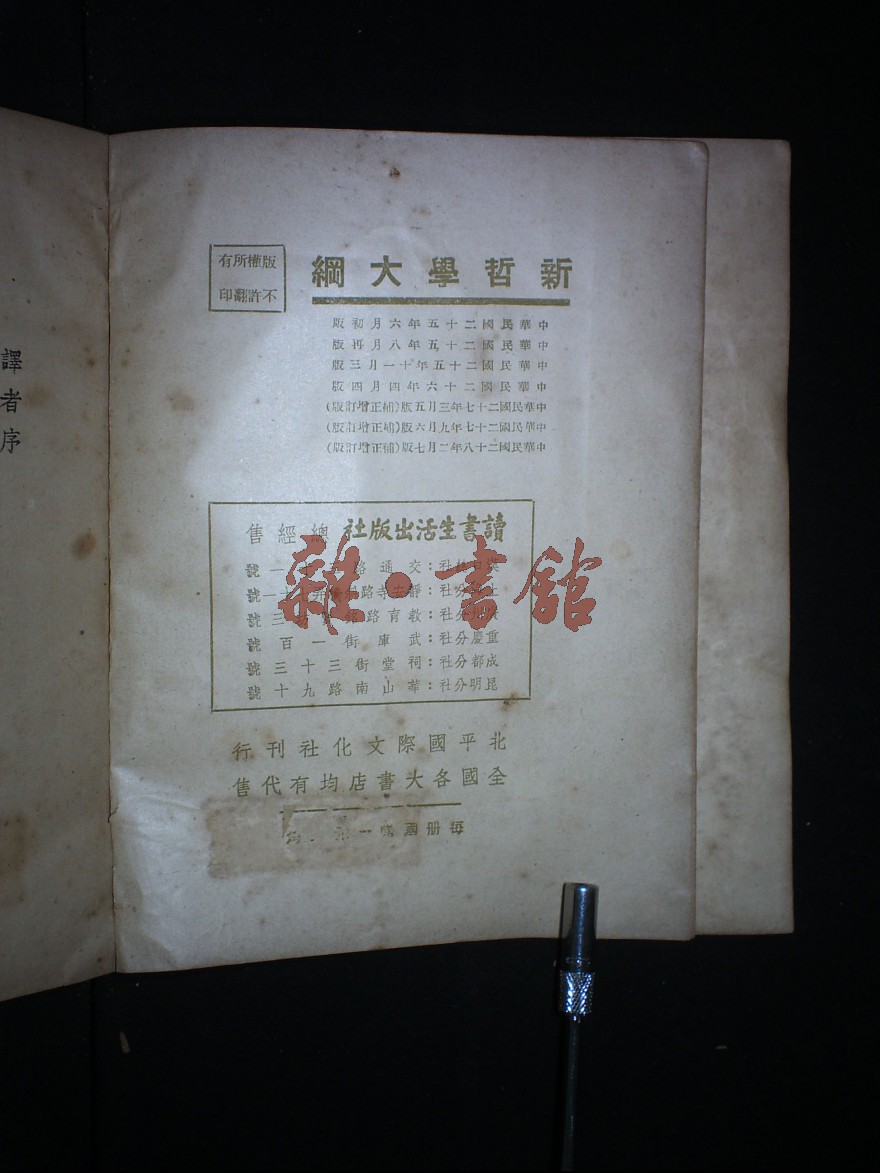 新哲學大綱
版權所有
不許翻印
中華民國二十五年六月初版
中華民國二十五年八月再版
中華民國二十五年十一月三版
中華民國二十六年四月四版
中華民國二十七年三月五版(補正增訂版)
中華民國二十七年九月六版(補正增訂版)
中華民國二十八年二月七版(補正增訂版)
讀書生活出版社總經售
社：交通路一號
靜安寺路
社：教育路三號
重慶分社：武庫街一百號
成都分社：祠堂街三十三號
昆明分社：華山南路九十號
北平國際文化社刊行
全國各大書店均有代售
每册國幣一
譯者序
雜·書館